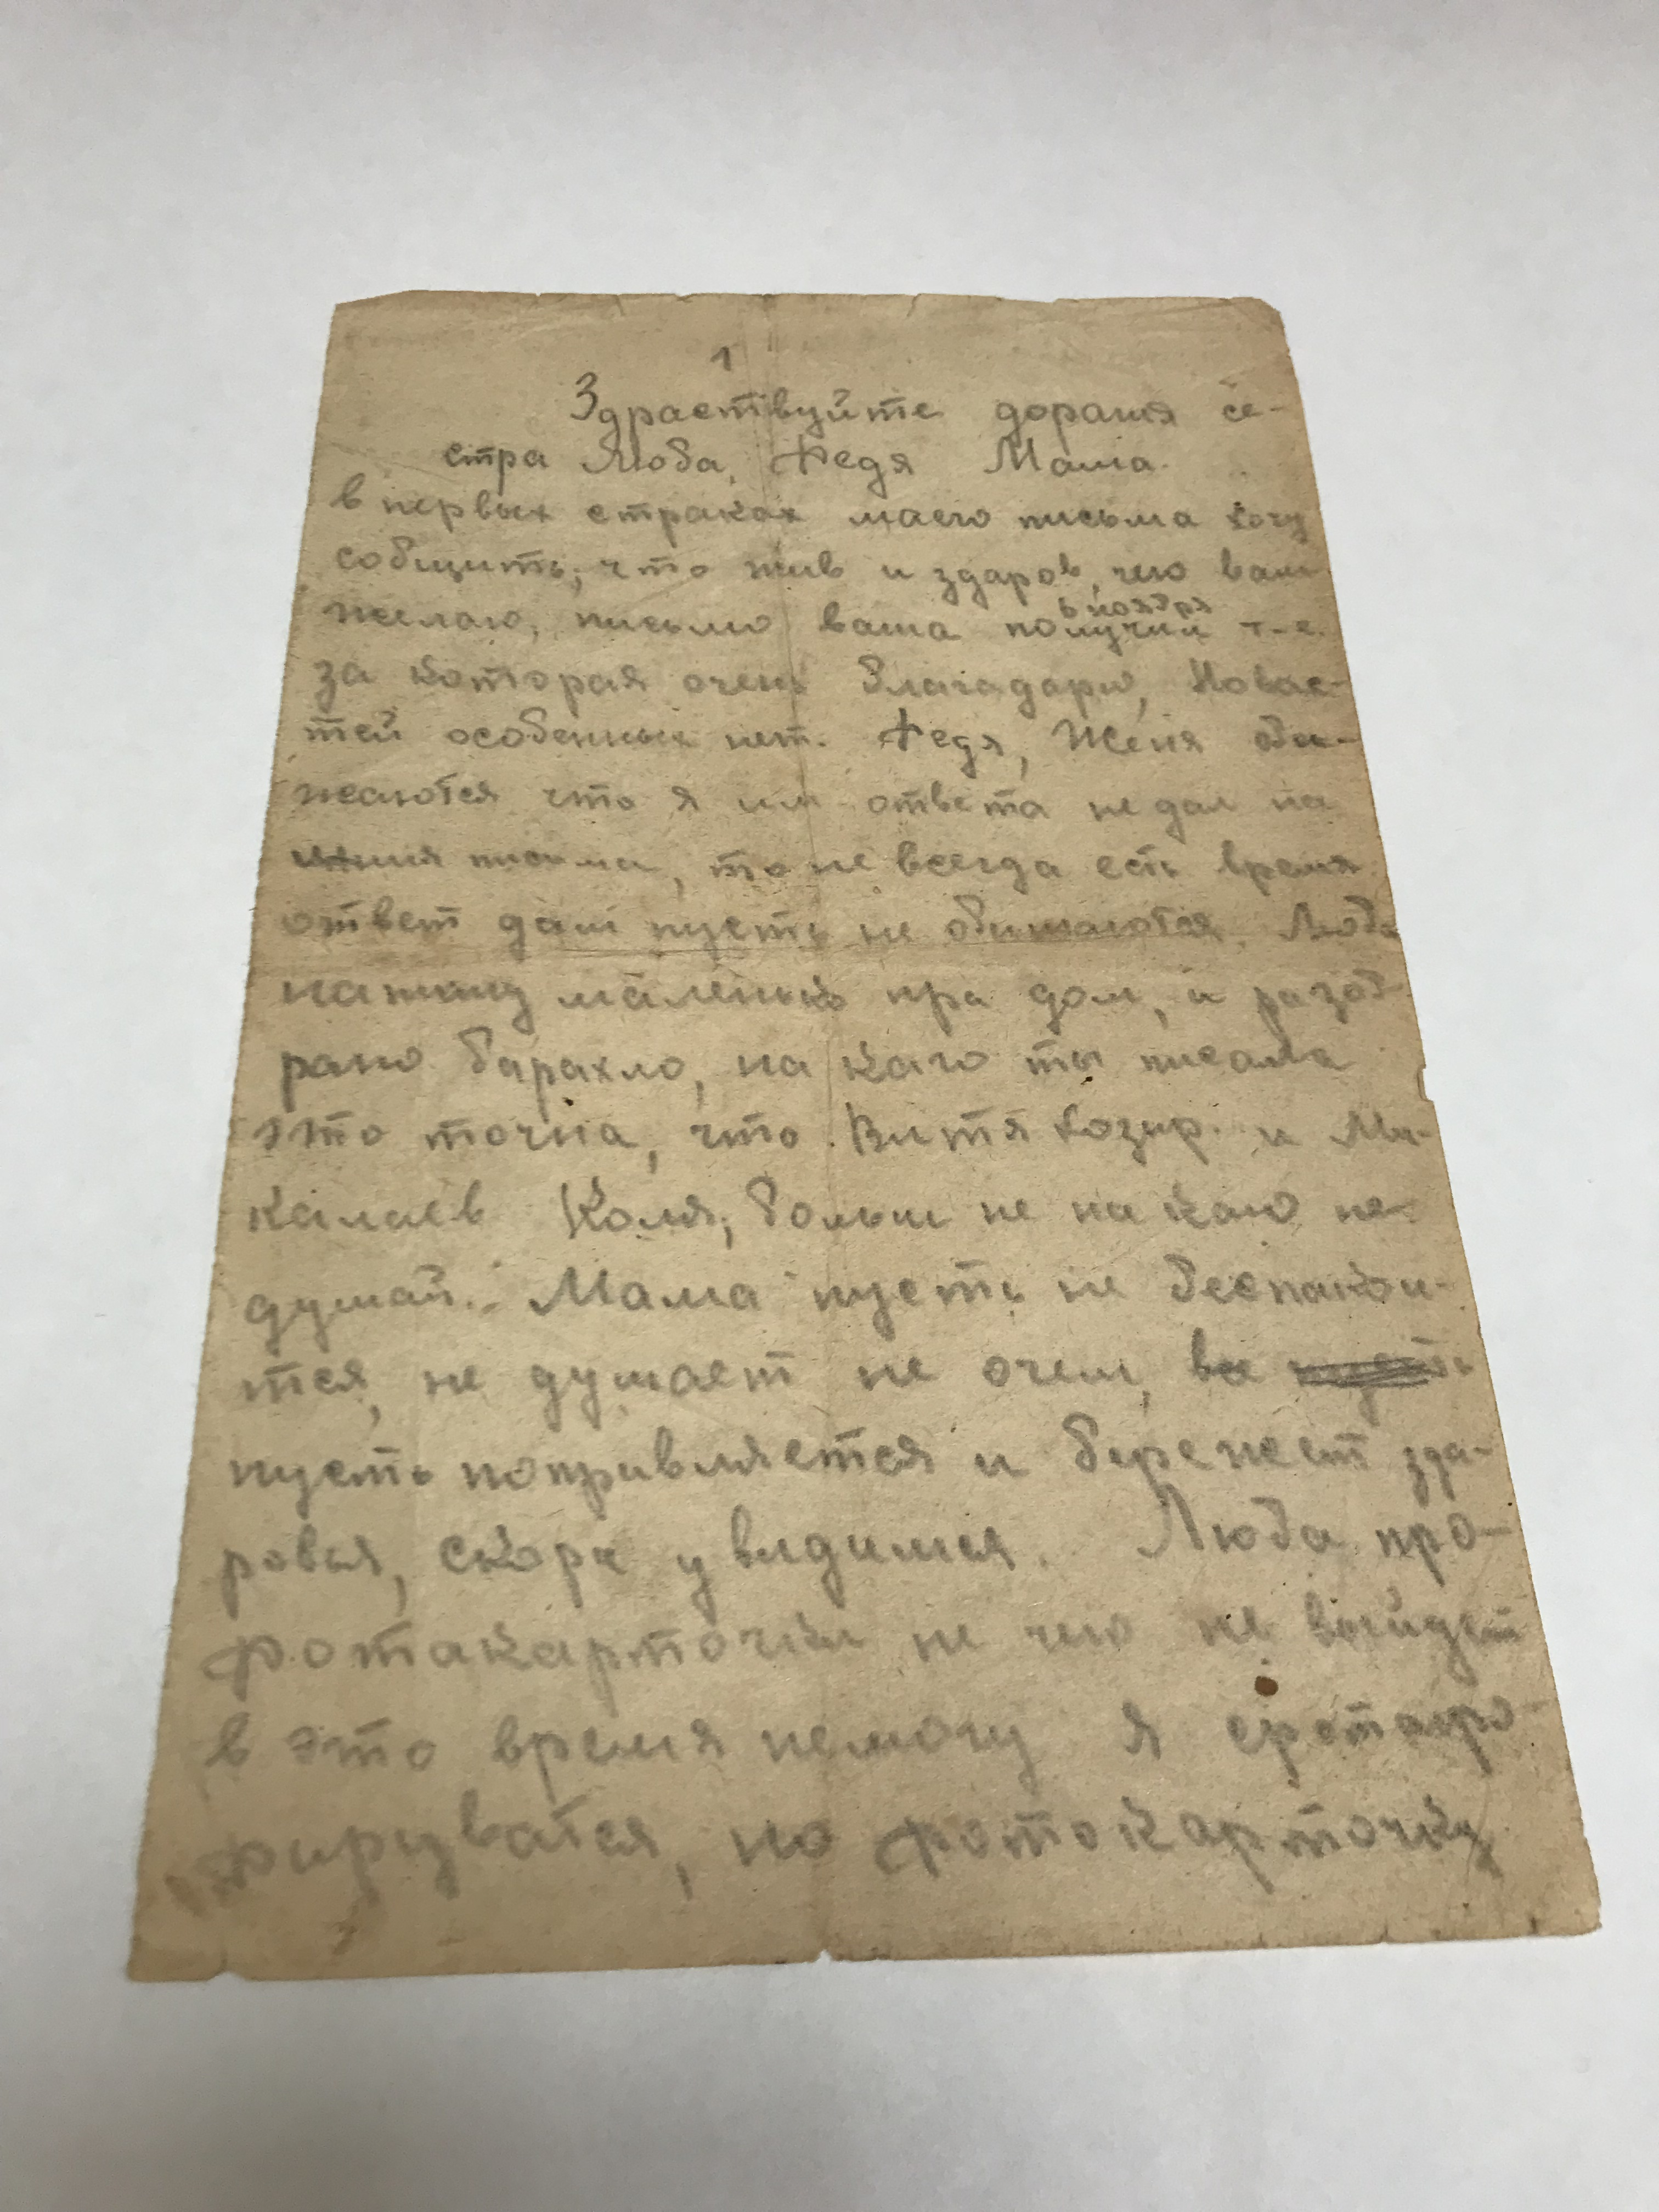 1
Здраствуйте дорагия се-
стра Люба, Федя Мама.
в первых страках маего письма хочу
собщить, что жив и здаров, чего вам
желаю, письмо ваша получил т-е.
6 ноября
за которая очень благадарю, Новас-
тей особенных нет. Федя, Женя оби-
жаются что я им ответа не дал на
письма, то не всегда есть время
ответ дать пусть не обижаются. Люба
напишу маленько пра дом, и разоб-
рано барахло, на каго ты писала
это точна, что Витя Козир. и Ми-
калаев Коля, больши не на каго не
думай. Мама пусть не беспакои-
тся, не думает не очем, все
пусть поправляется и бережет зда-
ровья, скора увидимся. Люба про-
фотакарточки не чего не выйдет
в это время немогу я сфотагро-
фируватся, но фотокарточку